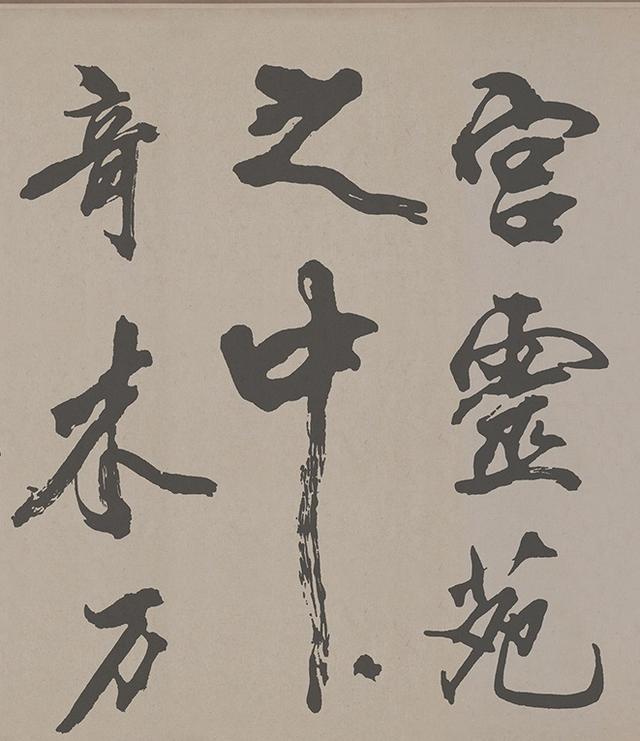 宮靈苑
之中
奇木万